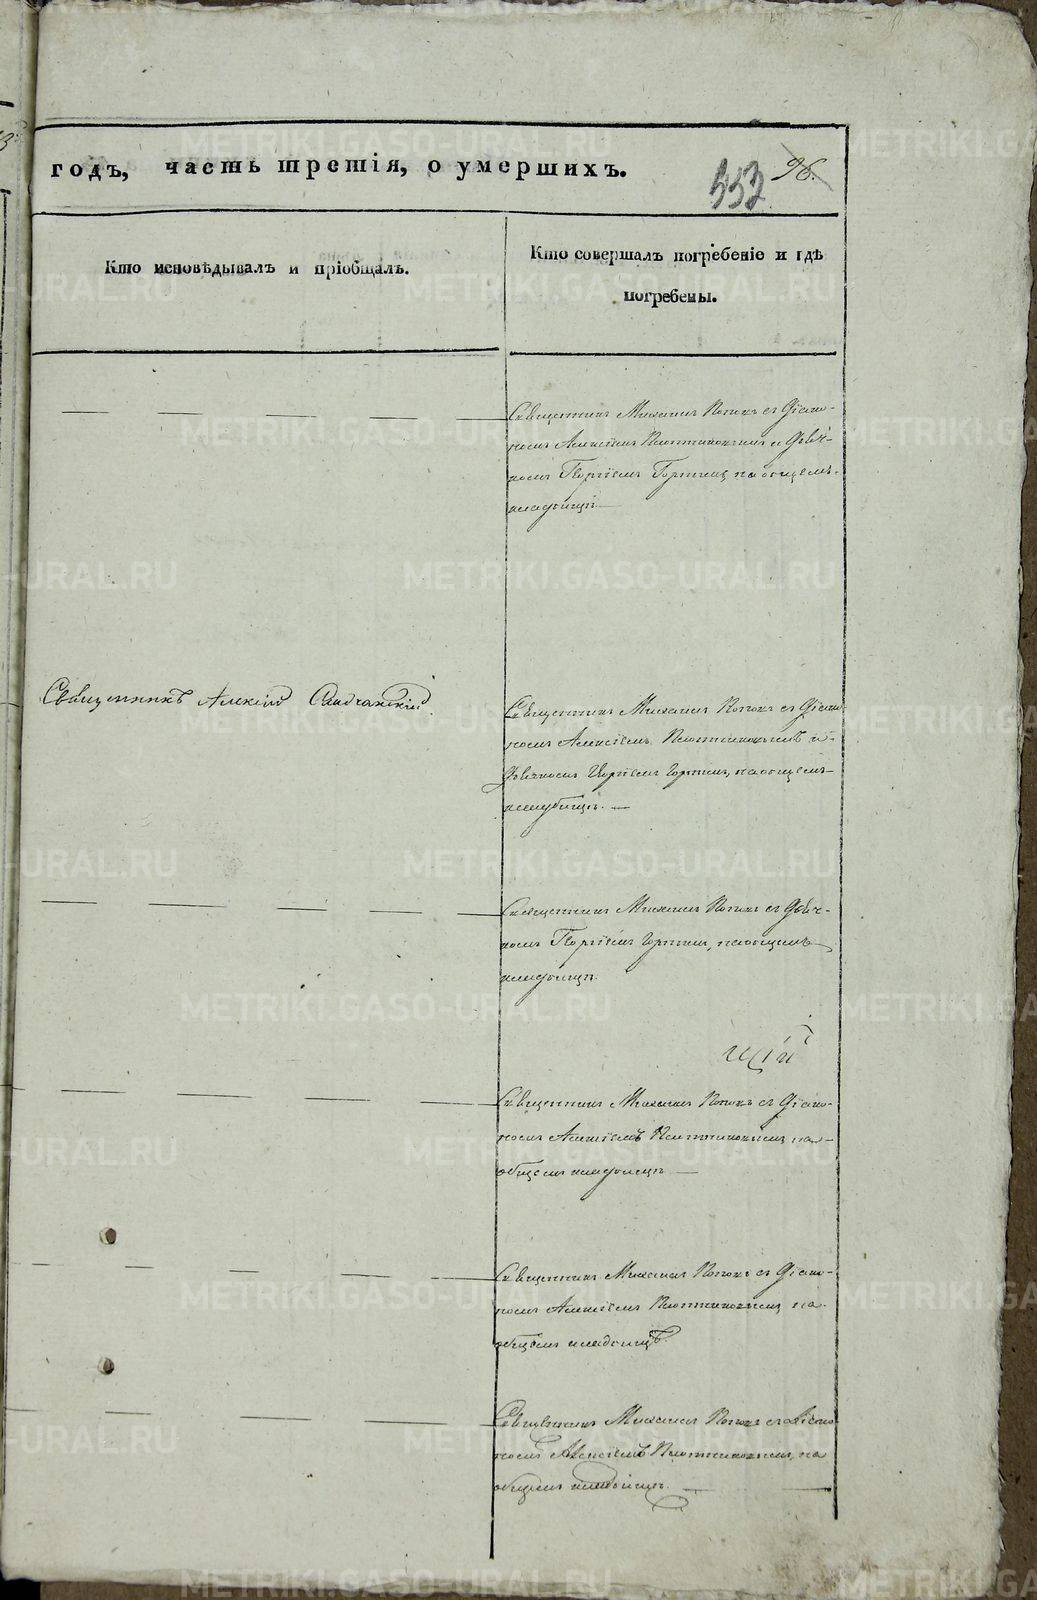 годъ, часть третія, о умершихъ.
553 96.
Кто исповѣдывалъ и пріобщалъ.
Кто совершалъ погребеніе и гдѣ
погребены.
Священникъ Михаилъ Поповъ съ Діако-
номъ Алексіемъ Плотниковымъ и Дьяч-
комъ Георгіемъ на общемъ
кладбищѣ
Священникъ Алексій
Священникъ Михаилъ Поповъ съ Діако-
номъ Алексіемъ Плотниковымъ и
Дьячкомъ Георгіемъ на общемъ
кладбищѣ.
Священникъ Михаилъ Поповъ съ Дьяч-
комъ Георгіемъ на общемъ
кладбищѣ.
щій
Священникъ Михаилъ Поповъ съ Діако-
номъ Алексіемъ Плотниковымъ на
общемъ кладбищѣ
Священникъ Михаилъ Поповъ съ Діако-
номъ Алексіемъ Плотниковымъ на
общемъ кладбищѣ.
Священникъ Михаилъ Поповъ съ Діако-
номъ Алексіемъ Плотниковымъ, на
общемъ кладбищѣ.
METRIKI.GASO-URAL.RU